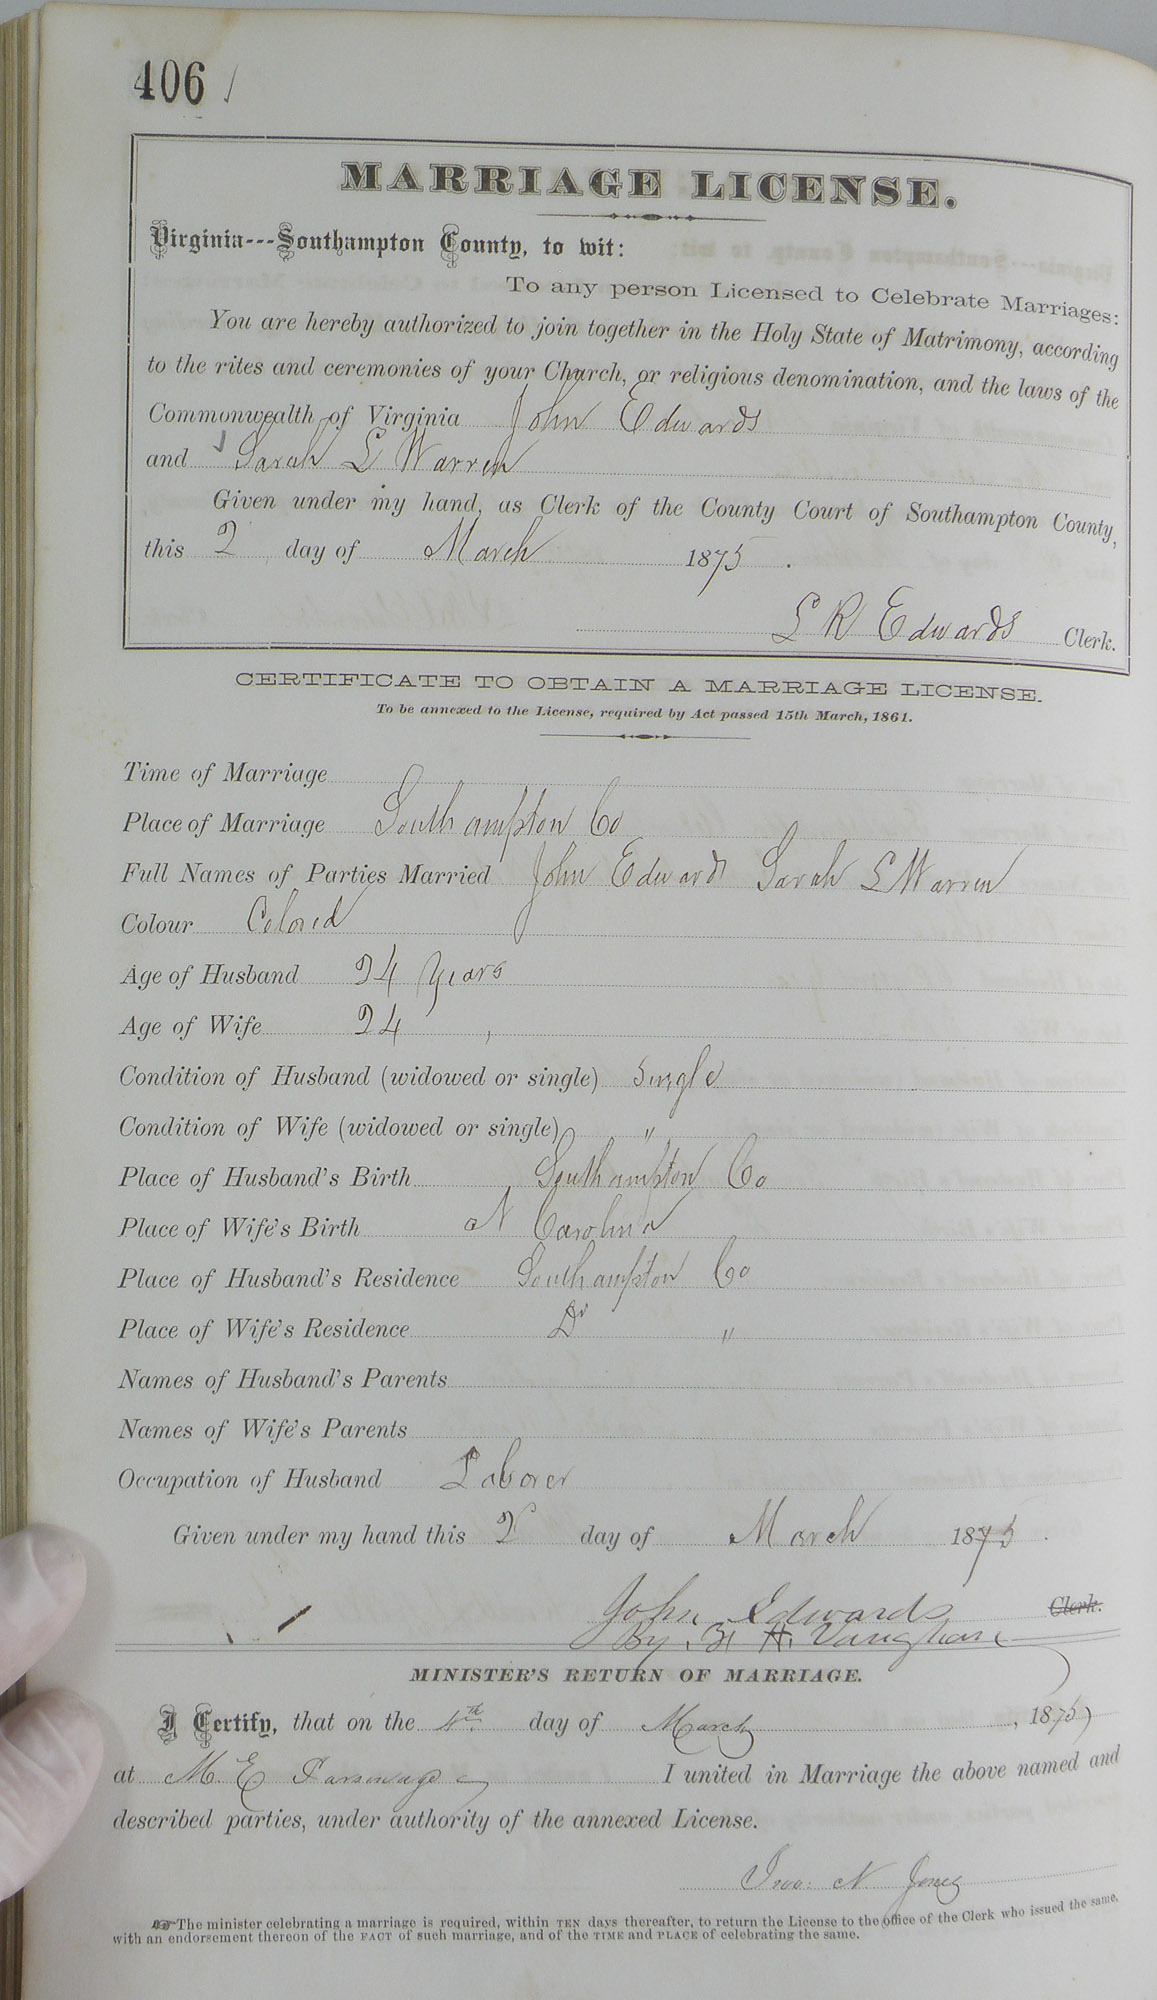 406
MARRIAGE LICENSE.
Virginia---Southampton County, to wit:
To any person Licensed to Celebrate Marriages:
You are hereby authorized to join together in the Holy State of Matrimony, according
to the rites and ceremonies of your Church, or religious denomination, and the laws of the
Commonwealth of Virginia John Edwards
and Sarah L Warren
Given under my hand, as Clerk of the County Court of Southampton County,
this 2 day of March 1875.
L R Edwards Clerk.
CERTIFICATE TO OBTAIN A MARRIAGE LICENSE.
To be annexed to the License, required by Act passed 15th March, 1861.
Time of Marriage
Place of Marriage Southampton Co
Full Names of Parties Married John Edwards Sarah L Warren
Colour Colored
Age of Husband 24 years
Age of Wife 24 "
Condition of Husband (widowed or single) Single
Condition of Wife (widowed or single) "
Place of Husband's Birth Southampton Co
Place of Wife's Birth N Carolina
Place of Husband's Residence Southampton Co
Place of Wife's Residence Do "
Names of Husband's Parents
Names of Wife's Parents
Occupation of Husband Laborer
Given under my hand this 2 day of March 1875.
John Edwards Clerk.
By H. Vaughan
MINISTER'S RETURN OF MARRIAGE.
I Certify, that on the 4th day of March, 1875
at M. E Parsonage I united in Marriage the above named and
described parties, under authority of the annexed License.
Jno: N. Jones
☞The minister celebrating a marriage is required, within TEN days thereafter, to return the License to the office of the Clerk who issued the same,
with an endorsement thereon of the FACT of such marriage, and of the TIME and PLACE of celebrating the same.